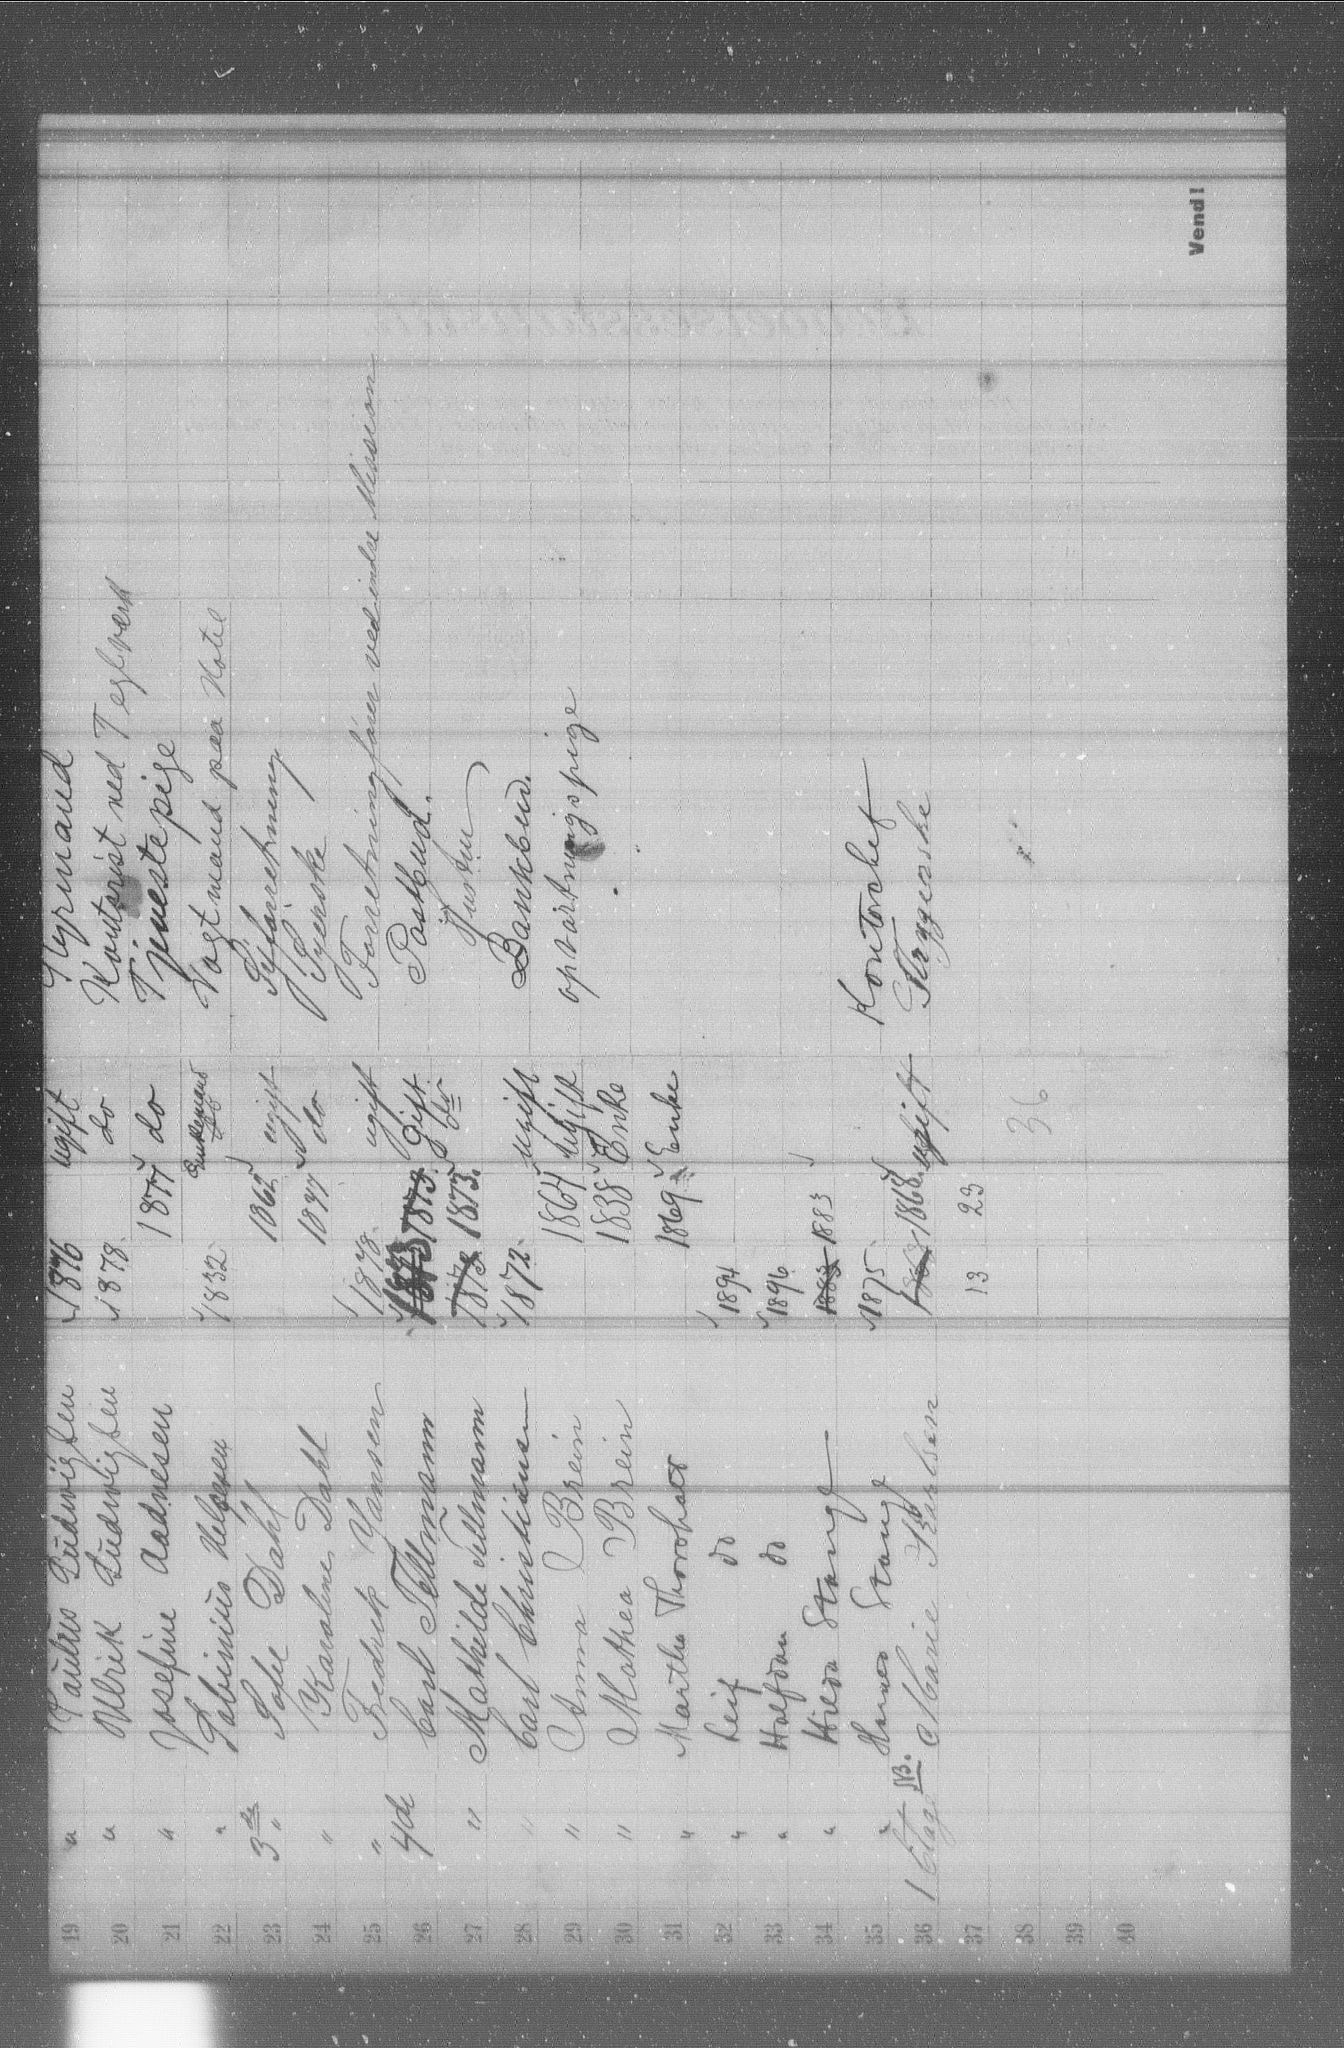 19 " Paulus Ludvigsen 1876 ugift Styrmand
20 " Ulrik Ludvigsen 1878 do Kontorist ved Teglværk
21 " Josefine Aadnesen 1877 do Tjenestepige
22 " Sabinius 1832 Enkemand Vagtmand paa Hotel
23 3de " Dahl 1862 ugift Syforretning
24 " Karoline Dahl 1877 do Syerske
25 " Fredrik Hansen 1878 ugift Forretningsfører ved indre Mission
26 4de Carl Tellmann 1873 gift Postbud.
27 " Mathilde Tellmann 1873 1873. do Hustru
28 " Carl Christiansen 1872 ugift Bankbud.
29 " Anna Brein 1864 Ugift opvartningspige
30 " Mathea Brein 1838 Enke
31 " Martha Thorobæs 1869 Enke
32 " Leif do 1894
33 " Halfdan do 1896
34 " Hilda Stange 1883 1883
35 " Hannes Stange 1875 Kontorchef
36 1 Etage NB. Marie Karlsen 1868 ugift Strygerske
37 13 23
38 36
39
40
Vend!